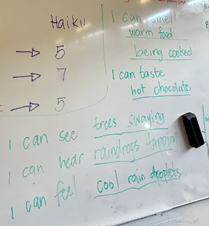 Haiku
→ 5
→ 7
→ 5
I can smell
warm food
being cooked
I can taste
hot chocolate
I can see trees swaying
I can hear raindrops tappin
I can feel cool rain droplets